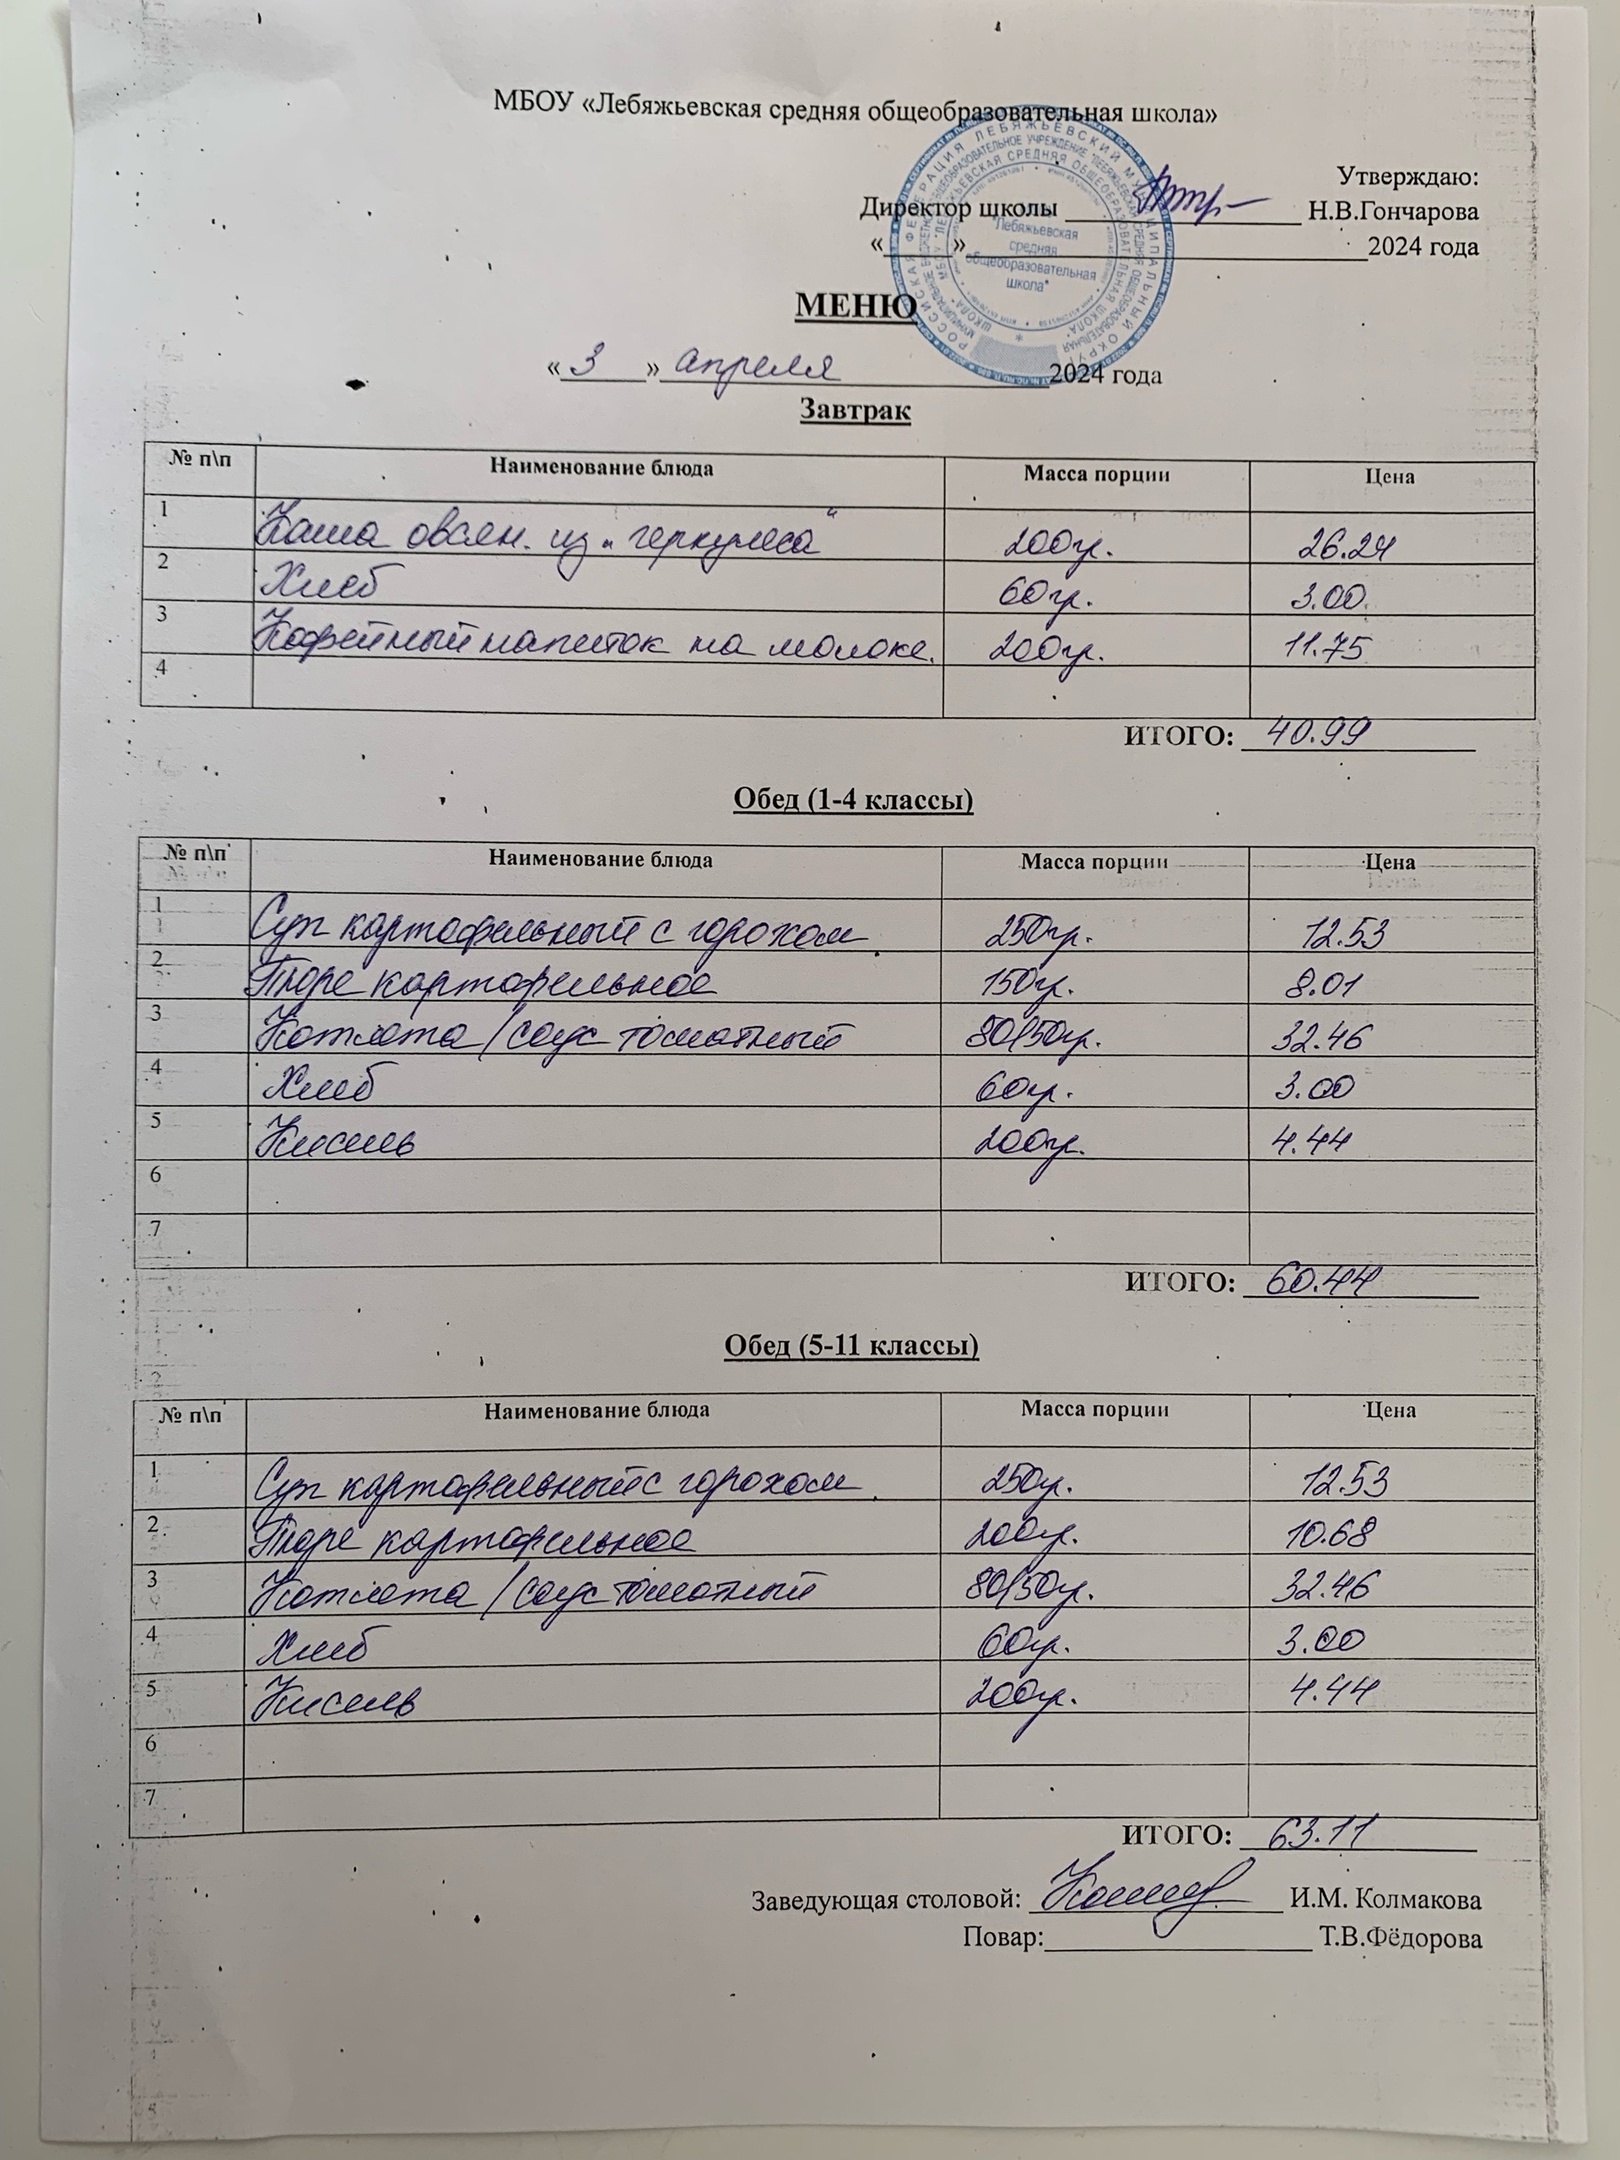 МБОУ «Лебяжьевская средняя общеобразовательная школа»
Утверждаю:
Директор школы Н.В.Гончарова
« » 2024 года
"Лебяжьевская
средняя
общеобразовательная
школа"
МЕНЮ
« 3 » апреля 2024 года
Завтрак
№ п\п Наименование блюда Масса порции Цена
1 Каша овсян. из „геркулеса“ 200гр. 26.24
2 Хлеб 60гр. 3.00
3 Кофейный напиток на молоке. 200гр. 11.75
4
ИТОГО: 40.99
Обед (1-4 классы)
№ п\п Наименование блюда Масса порции Цена
1 Суп картофельный с горохом 250гр. 12.53
2 Пюре картофельное 150гр. 8.01
3 Котлета/соус томатный 80/50гр. 32.46
4 Хлеб 60гр. 3.00
5 Кисель 200гр. 4.44
6
7
ИТОГО: 60.44
Обед (5-11 классы)
№ п\п Наименование блюда Масса порции Цена
1 Суп картофельный с горохом 250гр. 12.53
2 Пюре картофельное 200гр. 10.68
3 Котлета/соус томатный 80/50гр. 32.46
4 Хлеб 60гр. 3.00
5 Кисель 200гр. 4.44
6
7
ИТОГО: 63.11
Заведующая столовой: И.М. Колмакова
Повар: Т.В.Фёдорова